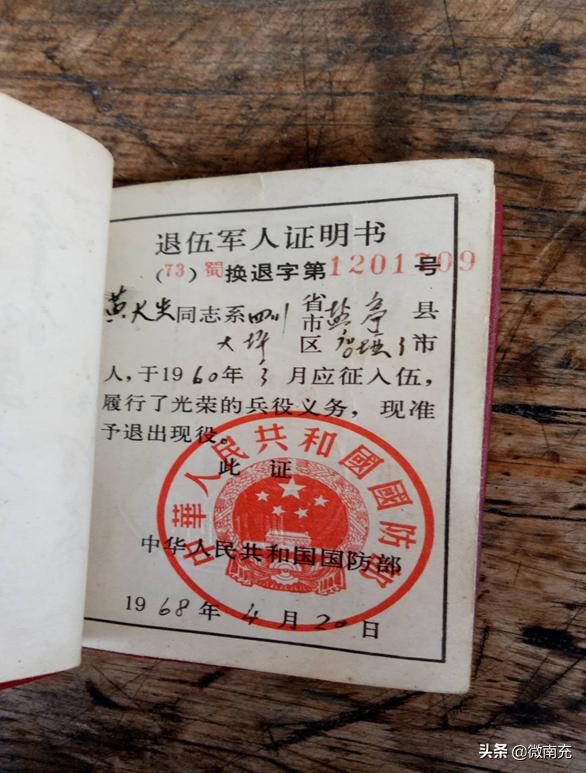 退伍军人证明书
(73)蜀换退字第1201709号
黄大典同志系四川省市盐亭县
大坪区市
人,于1960年3月应征入伍,
履行了光荣的兵役义务,现准
予退出现役。
此证
中華人民共和國國防部
中华人民共和国国防部
1968年4月20日
头条@微南充